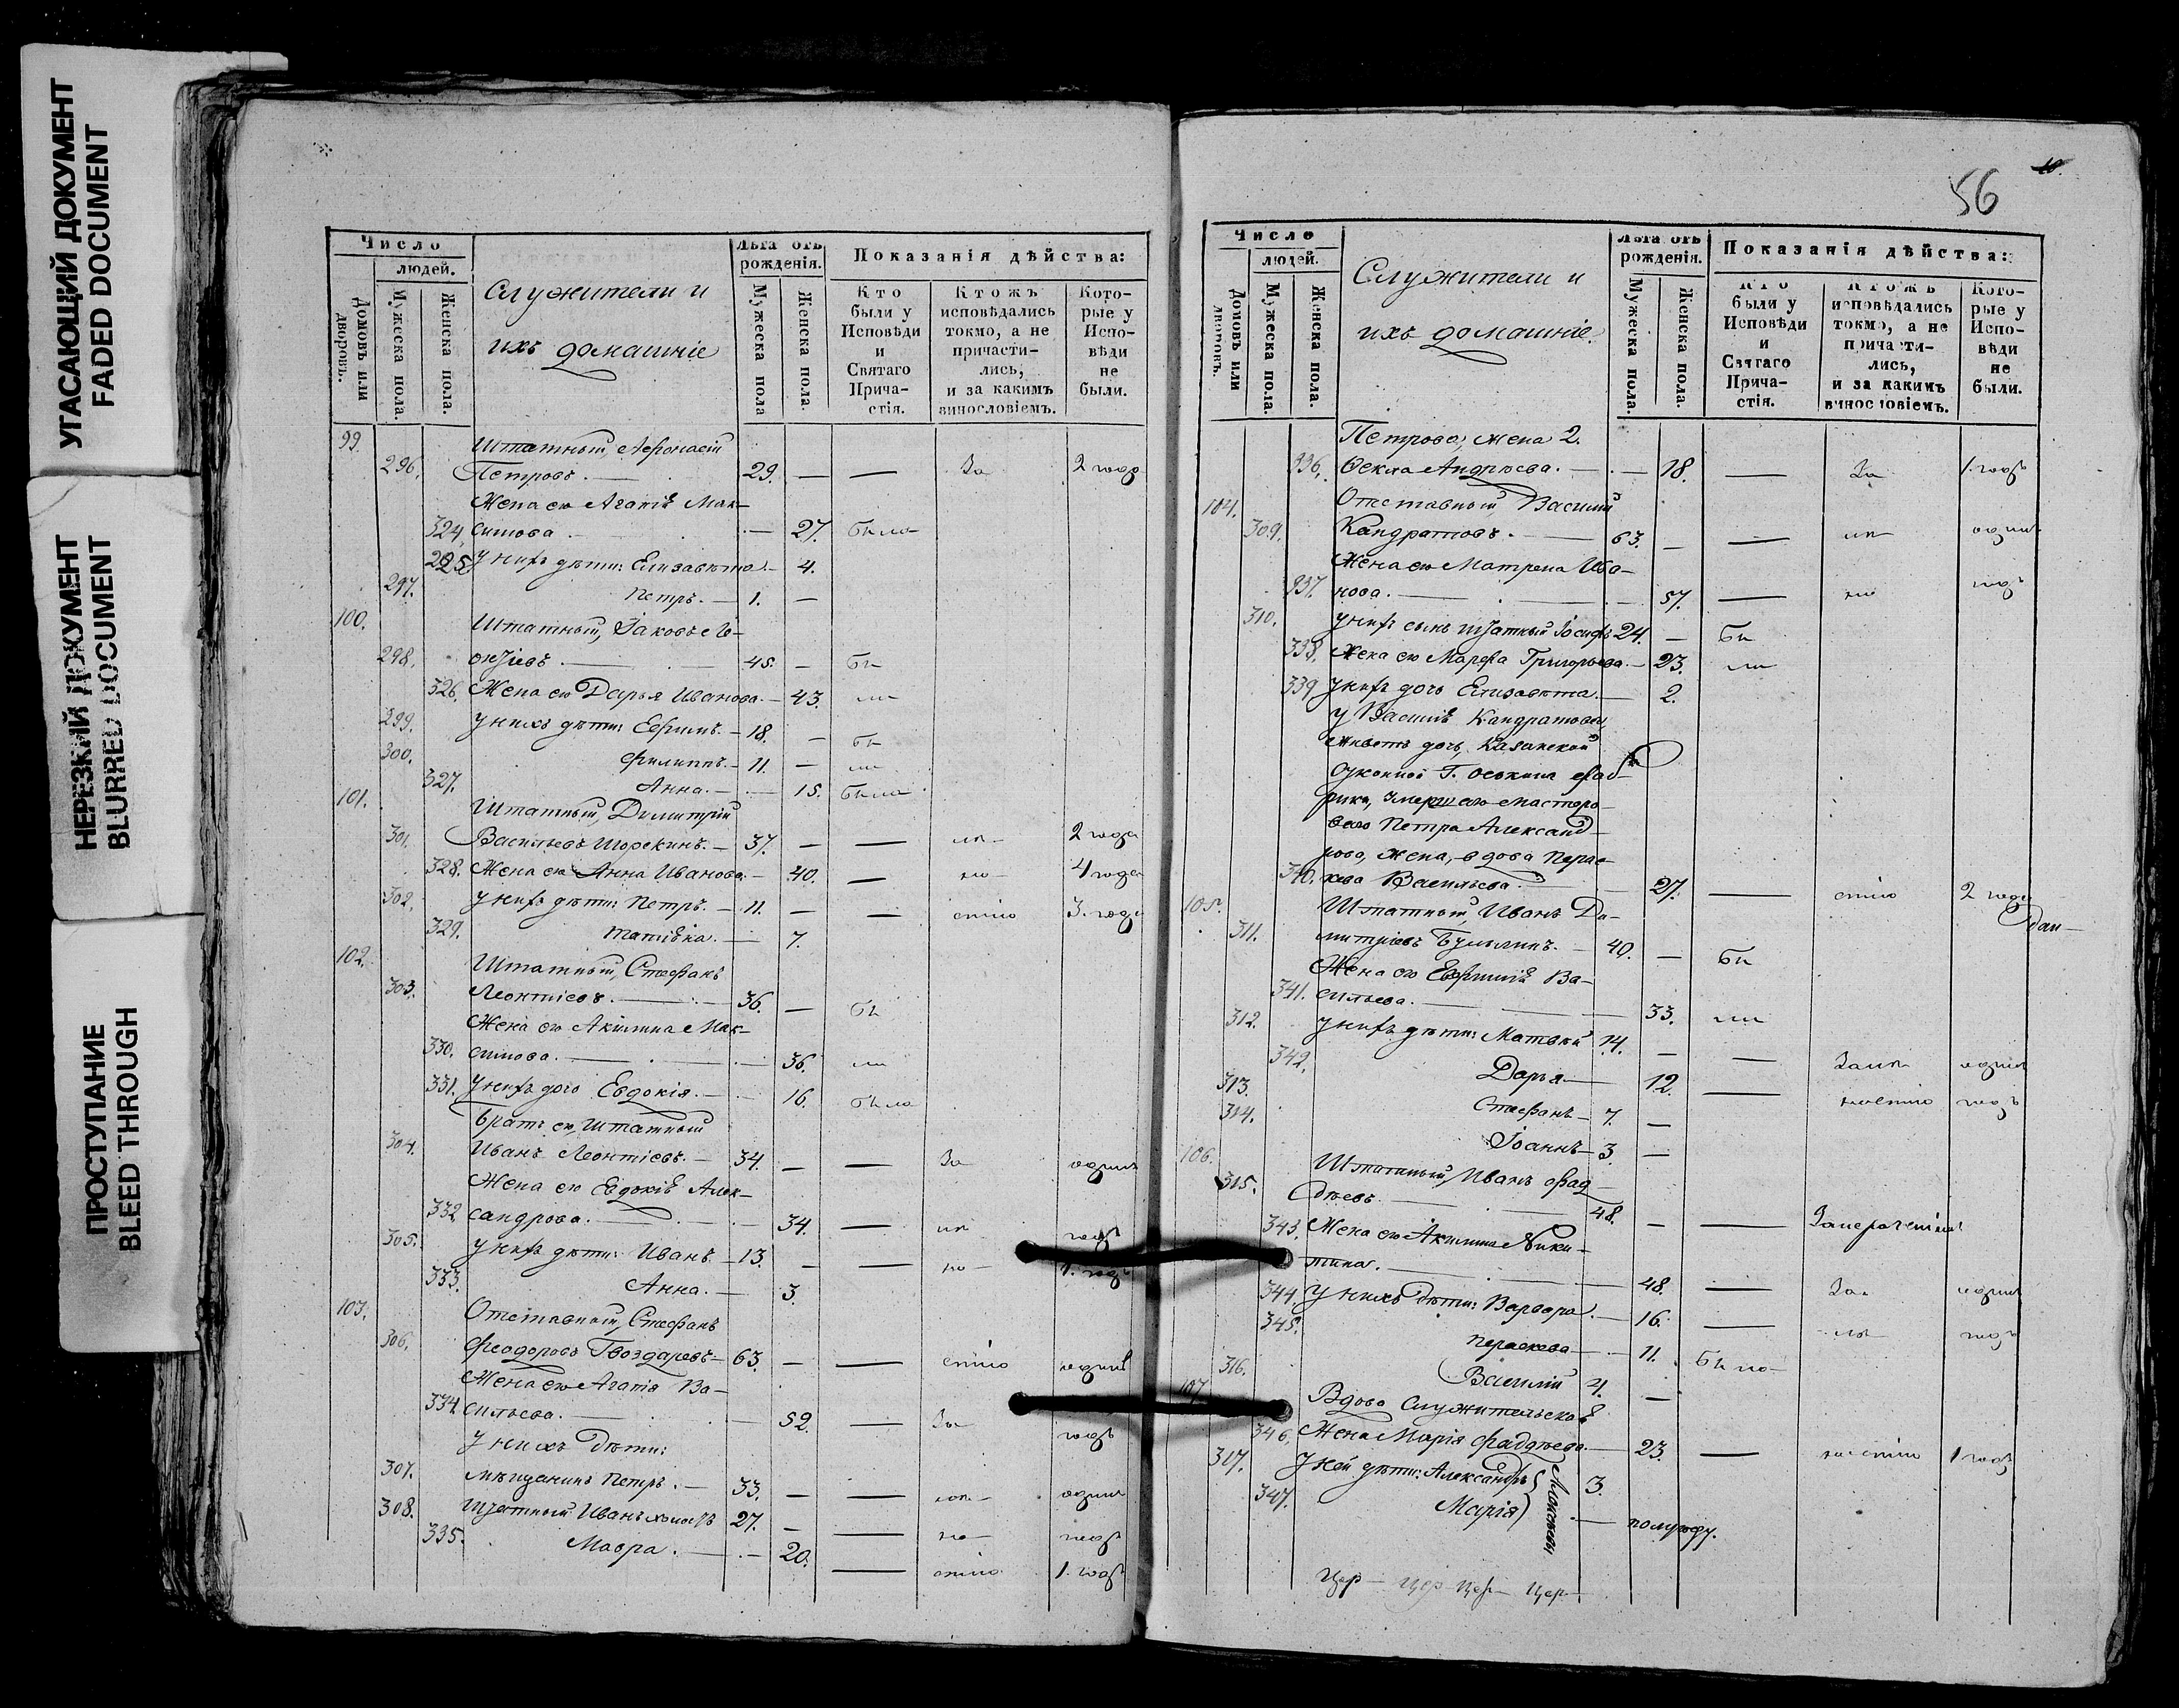 УГАСАЮЩИЙ ДОКУМЕНТ
FADED DOCUMENT
НЕРЕЗКИЙ ДОКУМЕНТ
BLURRED DOCUMENT
ПРОСТУПАНИЕ
BLEED THROUGH
Число
людей.
Домовъ или дворовъ.
Мужеска пола.
Женска пола.
Служители и
ихъ домашніе
Лѣта отъ рожденія.
Мужеска пола
Женска пола.
Показанія дѣйства:
Кто были у Исповѣди и Святаго Причастія.
Ктожъ исповѣдались токмо, а не причастились, и за какимъ винословіемъ.
Которые у Исповѣди не были.
99. Штатный Афонасій
296. Петровъ. 29. — — За 2 года
Жена его Агапія Мак-
324. симова — 27. была
325. У нихъ дѣти: Елизавета — 4.
297. Петръ. — 1. —
100. Штатный, Іаковъ Ле-
298. онтіевъ — 45. — бы
326. Жена его Дарья Иванова. — 43. ли
299. У нихъ дѣти: Ефимъ. — 18. — бы
300. Филиппъ. — 11. — ли
327. Анна. — 15. была
101. Штатный, Димитрій
301. Васильевъ Шорекинъ. — 37. — — 2 года
328. Жена его Анна Иванова. — 40. — 4 года
302. У нихъ дѣти: Петръ. — 11. — — стію 3. года
329. Татіяна. — 7.
102. Штатный, Стефанъ
303. Леонтіевъ. — 36. — бы
Жена его Акилина Мак-
330. симова. — 36. ли
331. У нихъ дочь Евдокія. — 16. была
Братъ его, Штатный
304. Иванъ Леонтіевъ. — 34. — — За одинъ
Жена его Евдокія Алек-
332. сандрова. — 34. — годъ
305. У нихъ дѣти: Иванъ. — 13. — — 1. годъ
333. Анна. — 3.
103. Отставный, Стефанъ
306. Феодоровъ Гвоздаревъ — 63. — — стію одинъ
Жена его Агапія Ва-
334. сильева. — 52. — За годъ
У нихъ дѣти:
307. мѣщанинъ Петръ. — 33. — — одинъ
308. Штатный Иванъ 27. — — годъ
335. Мавра. — 20. — стію 1. годъ
56
Число
людей.
Домовъ или дворовъ.
Мужеска пола.
Женска пола.
Служители и
ихъ домашніе.
Лѣта отъ рожденія.
Мужеска пола.
Женска пола.
Показанія дѣйства:
Кто были у Исповѣди и Святаго Причастія.
Ктожъ исповѣдались токмо, а не причастились, и за какимъ винословіемъ.
Которые у Исповѣди не были.
Петрова, жена 2.
336. Ѳекла Андреева. — 18. — За 1. годъ
104. Отставный, Василій
309. Кандратовъ. — 63. — — одинъ
Жена его Матрена Ива-
337. нова. — 57. — годъ
310. У нихъ сынъ Штатный Іосифъ 24. — бы
338. Жена его Марфа Григорьева — 23. ли
339. У нихъ дочь Елизавета. — 2.
У Василія Кандратова
живетъ дочь, Казанской
суконной Г. Осокина фаб-
рики, умершаго мастеро-
ваго Петра Александ-
рова, жена, вдова Перас-
340. кева Васильева. — 27. — стію 2 года
105. Штатный, Иванъ Ди-
311. митріевъ — 40. — бы
Жена его Евфимія Ва-
341. сильева. — 33. ли
312. У нихъ дѣти: Матвей 14. — — одинъ
342. Дарья — 12. — годъ
313. Стефанъ — 7. —
314. Іоаннъ — 3. —
106. Штатный, Иванъ Фад-
315. дѣевъ. — 48. — —
343. Жена его Акилина Ники-
тина. — 48. — За одинъ
344. У нихъ дѣти: Варвара. — 16. — годъ
345. Пераскева — 11. была
316. Василій 4. —
107. Вдова служительская
346. Жена Марія Фаддѣева — 23. — 1 годъ
317. У ней дѣти: Александръ 3.
347. Марія — полугоду.
Цер — Цер — Цер — Цер —